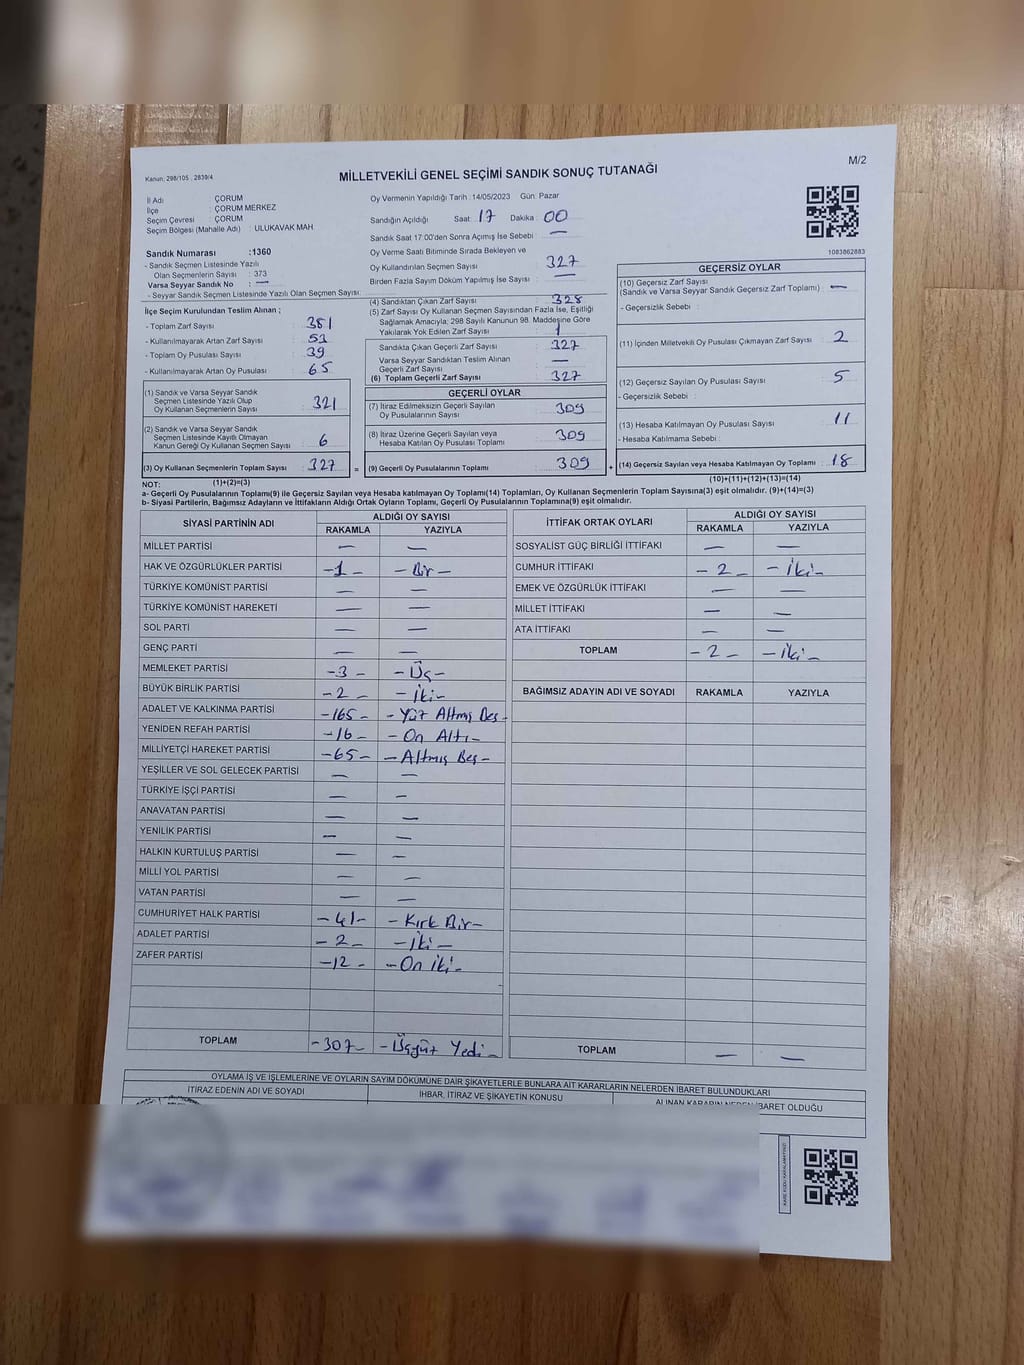 Kanun: 298/105 , 2839/4
MİLLETVEKİLİ GENEL SEÇİMİ SANDIK SONUÇ TUTANAĞI
M/2
İl Adı : ÇORUM
İlçe : ÇORUM MERKEZ
Seçim Çevresi : ÇORUM
Seçim Bölgesi (Mahalle Adı) : ULUKAVAK MAH
Sandık Numarası :1360
- Sandık Seçmen Listesinde Yazılı
Olan Seçmenlerin Sayısı : 373
Varsa Seyyar Sandık No : —
- Seyyar Sandık Seçmen Listesinde Yazılı Olan Seçmen Sayısı:
İlçe Seçim Kurulundan Teslim Alınan ;
- Toplam Zarf Sayısı : 381
- Kullanılmayarak Artan Zarf Sayısı : 53
- Toplam Oy Pusulası Sayısı : 39
- Kullanılmayarak Artan Oy Pusulası : 65
(1) Sandık ve Varsa Seyyar Sandık
Seçmen Listesinde Yazılı Olup
Oy Kullanan Seçmenlerin Sayısı : 321
(2) Sandık ve Varsa Seyyar Sandık
Seçmen Listesinde Kayıtlı Olmayan
Kanun Gereği Oy Kullanan Seçmen Sayısı : 6
(3) Oy Kullanan Seçmenlerin Toplam Sayısı : 327
(1)+(2)=(3)
Oy Vermenin Yapıldığı Tarih : 14/05/2023 Gün: Pazar
Sandığın Açıldığı Saat : 17 Dakika : 00
Sandık Saat 17:00'den Sonra Açılmış İse Sebebi : —
Oy Verme Saati Bitiminde Sırada Bekleyen ve
Oy Kullandırılan Seçmen Sayısı : 327
Birden Fazla Sayım Döküm Yapılmış İse Sayısı : —
(4) Sandıktan Çıkan Zarf Sayısı : 328
(5) Zarf Sayısı Oy Kullanan Seçmen Sayısından Fazla İse, Eşitliği
Sağlamak Amacıyla, 298 Sayılı Kanunun 98. Maddesine Göre
Yakılarak Yok Edilen Zarf Sayısı : 1
Sandıkta Çıkan Geçerli Zarf Sayısı : 327
Varsa Seyyar Sandıktan Teslim Alınan
Geçerli Zarf Sayısı : —
(6) Toplam Geçerli Zarf Sayısı : 327
GEÇERLİ OYLAR
(7) İtiraz Edilmeksizin Geçerli Sayılan
Oy Pusulalarının Sayısı : 309
(8) İtiraz Üzerine Geçerli Sayılan veya
Hesaba Katılan Oy Pusulası Toplamı : 309
= (9) Geçerli Oy Pusulalarının Toplamı : 309 +
1083862883
GEÇERSİZ OYLAR
(10) Geçersiz Zarf Sayısı
(Sandık ve Varsa Seyyar Sandık Geçersiz Zarf Toplamı) : —
- Geçersizlik Sebebi :
(11) İçinden Milletvekili Oy Pusulası Çıkmayan Zarf Sayısı : 2
(12) Geçersiz Sayılan Oy Pusulası Sayısı : 5
- Geçersizlik Sebebi :
(13) Hesaba Katılmayan Oy Pusulası Sayısı : 11
- Hesaba Katılmama Sebebi :
(14) Geçersiz Sayılan veya Hesaba Katılmayan Oy Toplamı : 18
(10)+(11)+(12)+(13)=(14)
NOT:
a- Geçerli Oy Pusulalarının Toplamı(9) ile Geçersiz Sayılan veya Hesaba Katılmayan Oy Toplamı(14) Toplamları, Oy Kullanan Seçmenlerin Toplam Sayısına(3) eşit olmalıdır. (9)+(14)=(3)
b- Siyasi Partilerin, Bağımsız Adayların ve İttifakların Aldığı Ortak Oyların Toplamı, Geçerli Oy Pusulalarının Toplamına(9) eşit olmalıdır.
SİYASİ PARTİNİN ADI ALDIĞI OY SAYISI
RAKAMLA YAZIYLA
MİLLET PARTİSİ — —
HAK VE ÖZGÜRLÜKLER PARTİSİ -1- -Bir-
TÜRKİYE KOMÜNİST PARTİSİ — —
TÜRKİYE KOMÜNİST HAREKETİ — —
SOL PARTİ — —
GENÇ PARTİ — —
MEMLEKET PARTİSİ -3- -Üç-
BÜYÜK BİRLİK PARTİSİ -2- -İki-
ADALET VE KALKINMA PARTİSİ -165- -Yüz Altmış Beş-
YENİDEN REFAH PARTİSİ -16- -On Altı-
MİLLİYETÇİ HAREKET PARTİSİ -65- -Altmış Beş-
YEŞİLLER VE SOL GELECEK PARTİSİ — —
TÜRKİYE İŞÇİ PARTİSİ — —
ANAVATAN PARTİSİ — —
YENİLİK PARTİSİ — —
HALKIN KURTULUŞ PARTİSİ — —
MİLLİ YOL PARTİSİ — —
VATAN PARTİSİ — —
CUMHURİYET HALK PARTİSİ -41- -Kırk Bir-
ADALET PARTİSİ -2- -İki-
ZAFER PARTİSİ -12- -On İki-
TOPLAM -307- -Üçyüz Yedi-
İTTİFAK ORTAK OYLARI ALDIĞI OY SAYISI
RAKAMLA YAZIYLA
SOSYALİST GÜÇ BİRLİĞİ İTTİFAKI — —
CUMHUR İTTİFAKI -2- -İki-
EMEK VE ÖZGÜRLÜK İTTİFAKI — —
MİLLET İTTİFAKI — —
ATA İTTİFAKI — —
TOPLAM -2- -İki-
BAĞIMSIZ ADAYIN ADI VE SOYADI RAKAMLA YAZIYLA
TOPLAM — —
OYLAMA İŞ VE İŞLEMLERİNE VE OYLARIN SAYIM DÖKÜMÜNE DAİR ŞİKAYETLERLE BUNLARA AİT KARARLARIN NELERDEN İBARET BULUNDUKLARI
İTİRAZ EDENİN ADI VE SOYADI İHBAR, İTİRAZ VE ŞİKAYETİN KONUSU ALINAN KARARIN NEDEN İBARET OLDUĞU